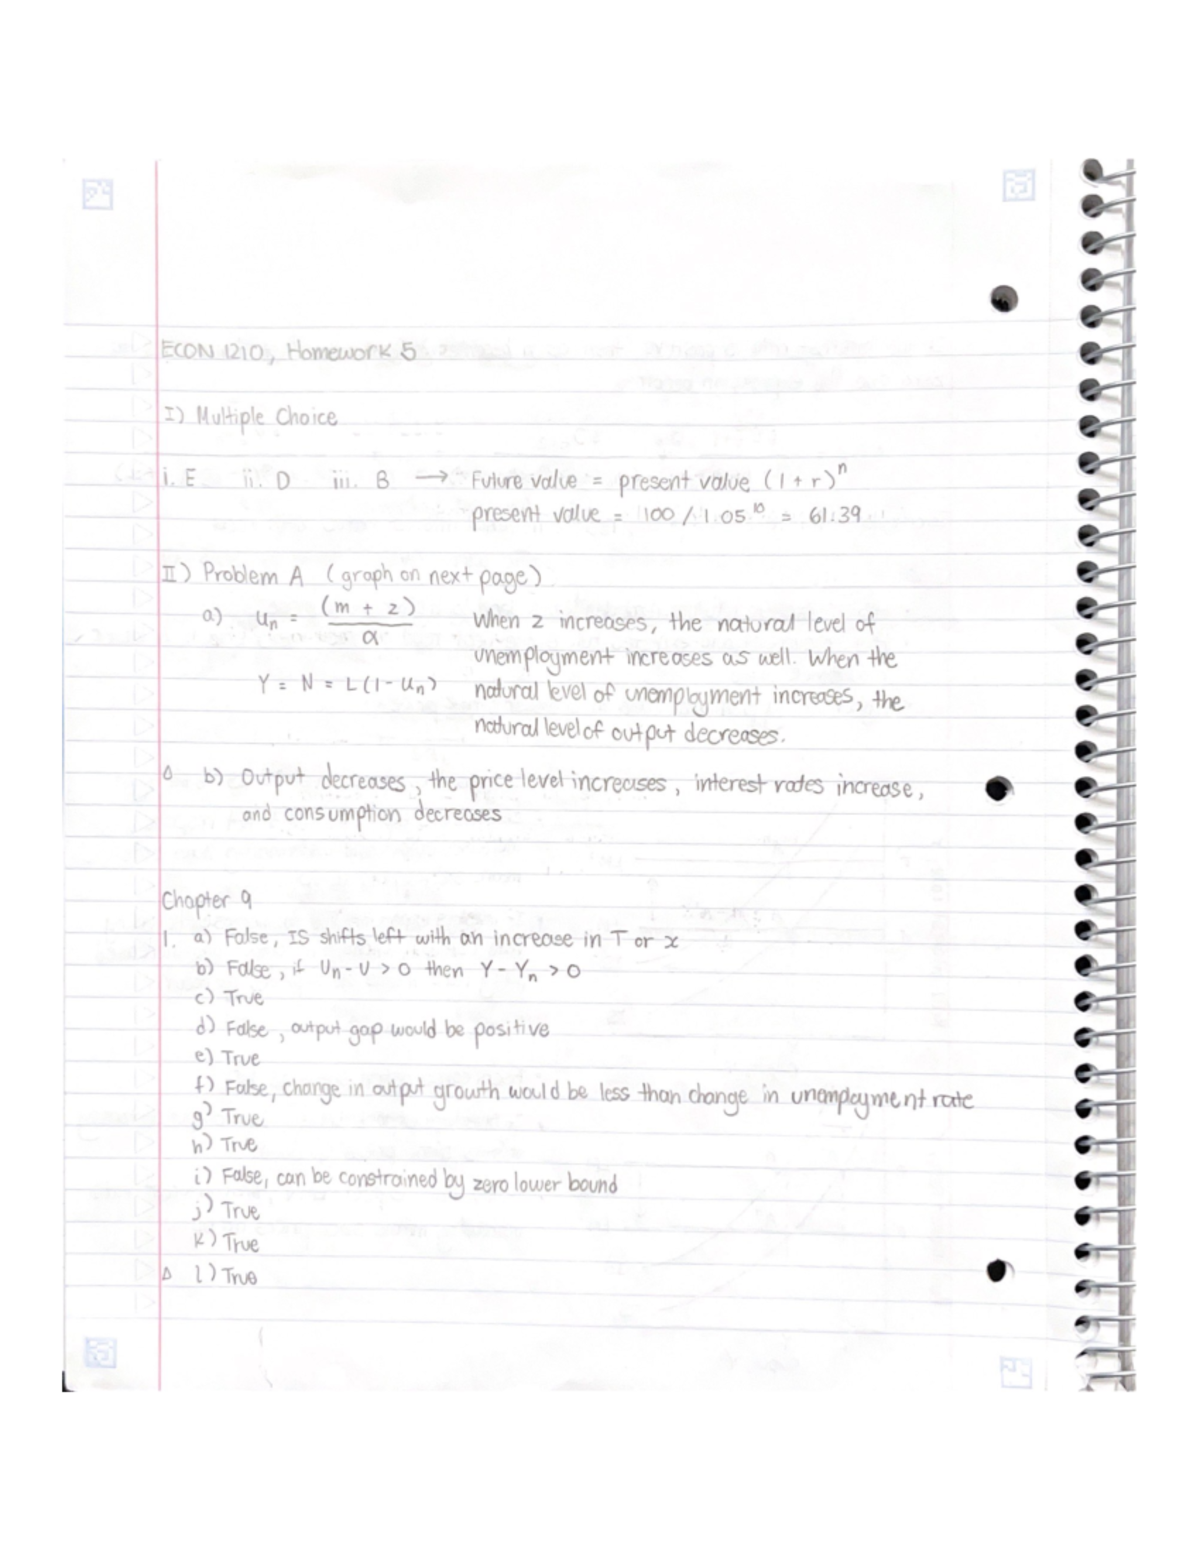 ECON 1210, Homework 5
I) Multiple Choice
i. E ii. D iii. B → Future value = present value (1 + r)^n
present value = 100 / 1.05^10 = 61.39
II) Problem A (graph on next page)
a) un = (m + z) / α When z increases, the natural level of
unemployment increases as well. When the
Y = N = L(1 - un) natural level of unemployment increases, the
natural level of output decreases.
b) Output decreases, the price level increases, interest rates increase,
and consumption decreases
Chapter 9
1. a) False, IS shifts left with an increase in T or x
b) False, if Un - U > 0 then Y - Yn > 0
c) True
d) False, output gap would be positive
e) True
f) False, change in output growth would be less than change in unemployment rate
g) True
h) True
i) False, can be constrained by zero lower bound
j) True
k) True
l) True